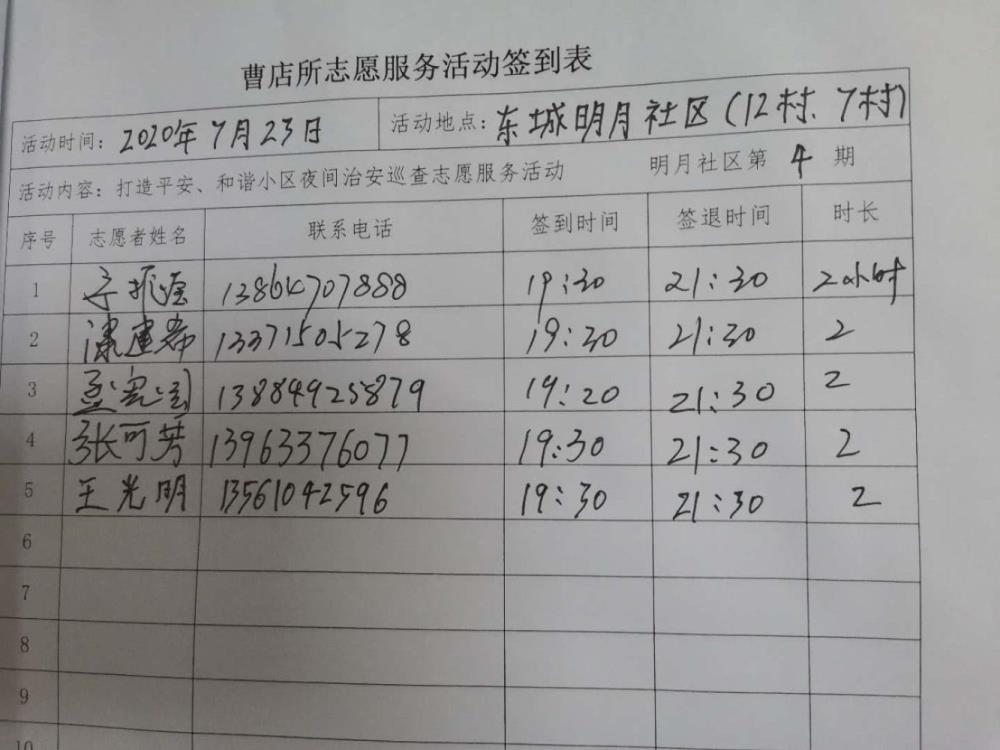 曹店所志愿服务活动签到表
活动时间: 2020年7月23日 活动地点: 东城明月社区(12村、7村)
活动内容: 打造平安、和谐小区夜间治安巡查志愿服务活动 明月社区第 4 期
序号 志愿者姓名 联系电话 签到时间 签退时间 时长
1 13864707888 19:30 21:30 2小时
2 13371505278 19:30 21:30 2
3 13884925879 19:20 21:30 2
4 张可芳 13963376077 19:30 21:30 2
5 王光明 13561042596 19:30 21:30 2
6
7
8
9
10